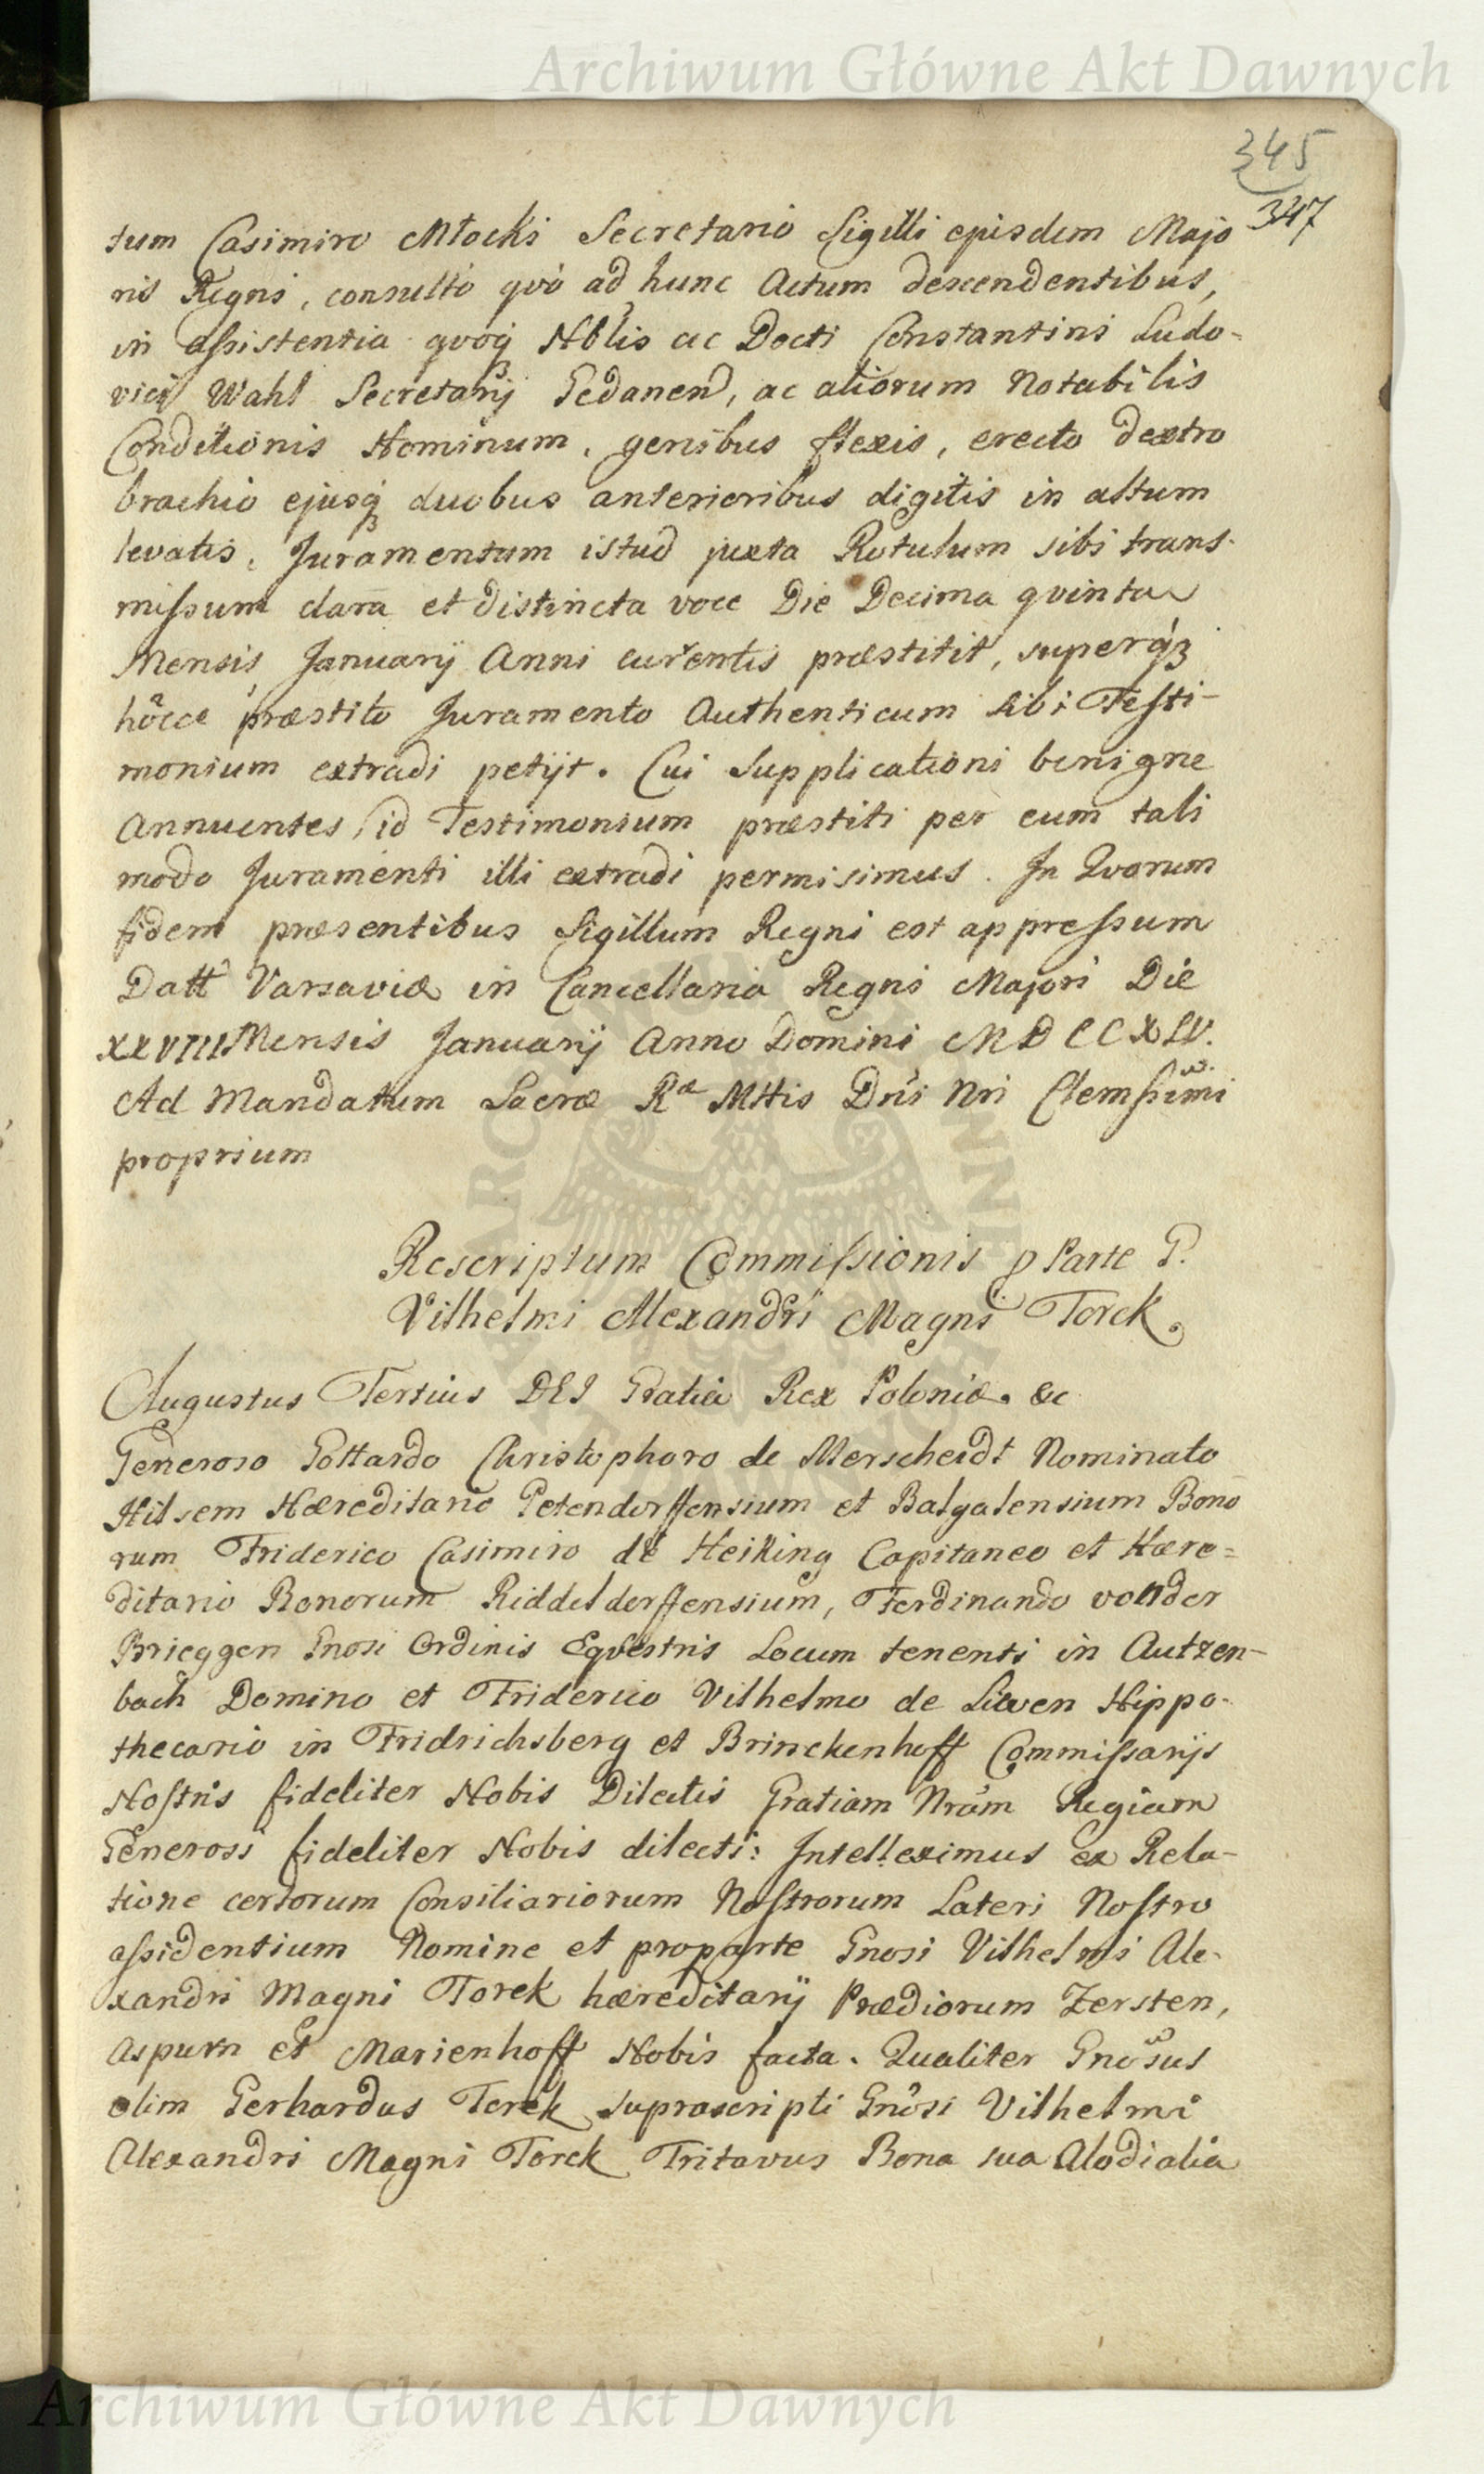 Archiwum Główne Akt Dawnych
345
347
tum Casimiro Młocki Secretario Sigilli ejusdem Majo
ris Regni, consulto qvo ad hunc Actum descendentibus,
in assistentia qvoq; Nblis ac Docti Constantini Ludo-
vici Wahl Secretarij Gedanen, ac aliorum Notabilis
Conditionis Hominum, genibus flexis, erecto dextro
brachio ejusq; duobus anterioribus digitis in altum
levatis, Juramentum istud juxta Rotulum sibi trans-
missum clara et distincta voce Die Decima qvinta
Mensis Januarij Anni currentis præstitit, superq;
hocce præstito Juramento Authenticum sibi Testi-
monium extradi petijt. Cui Supplicationi benigne
Annuentes, id Testimonium præstiti per eum tali
modo Juramenti illi extradi permisimus. In Qvorum
fidem præsentibus Sigillum Regni est appressum
Datt Varsaviæ in Cancellaria Regni Majori Die
XXVIII Mensis Januarij Anno Domini MDCCXLV.
Ad Mandatum Sacræ Ræ Mttis Dni Nri Clemssimi
proprium
Rescriptum Commissionis p Parte G.
Vilhelmi Alexandri Magni Torck.
Augustus Tertius DEI Gratia Rex Poloniæ. &c
Generoso Gottardo Christophoro de Merscheidt Nominato
Hilsem Hæreditario Petendorffensium et Balgalensium Bono
rum Friderico Casimiro de Heiking Capitaneo et Hære=
ditario Bonorum Riddeldorffensium, Ferdinando von der
Brieggen Gnosi Ordinis Eqvestris Locum tenenti in Autzen-
bach Domino et Friderico Vilhelmo de Liewen Hippo-
thecario in Fridrichsberg et Brinckenhoff Commissarijs
Nostris fideliter Nobis Dilectis Gratiam Nram Regiam
Generosi fideliter Nobis dilecti: Intelleximus ex Rela-
tione certorum Consiliariorum Nostrorum Lateri Nostro
assidentium Nomine et proparte Gnosi Vilhelmi Ale-
xandri Magni Torck hæreditarij Prædiorum Zersten,
Aspurn et Marienhoff Nobis facta. Qualiter Gnosus
olim Gerhardus Torck suprascripti Gnosi Vilhelmi
Alexandri Magni Torck Tritavus Bona sua Alodialia
Archiwum Główne Akt Dawnych